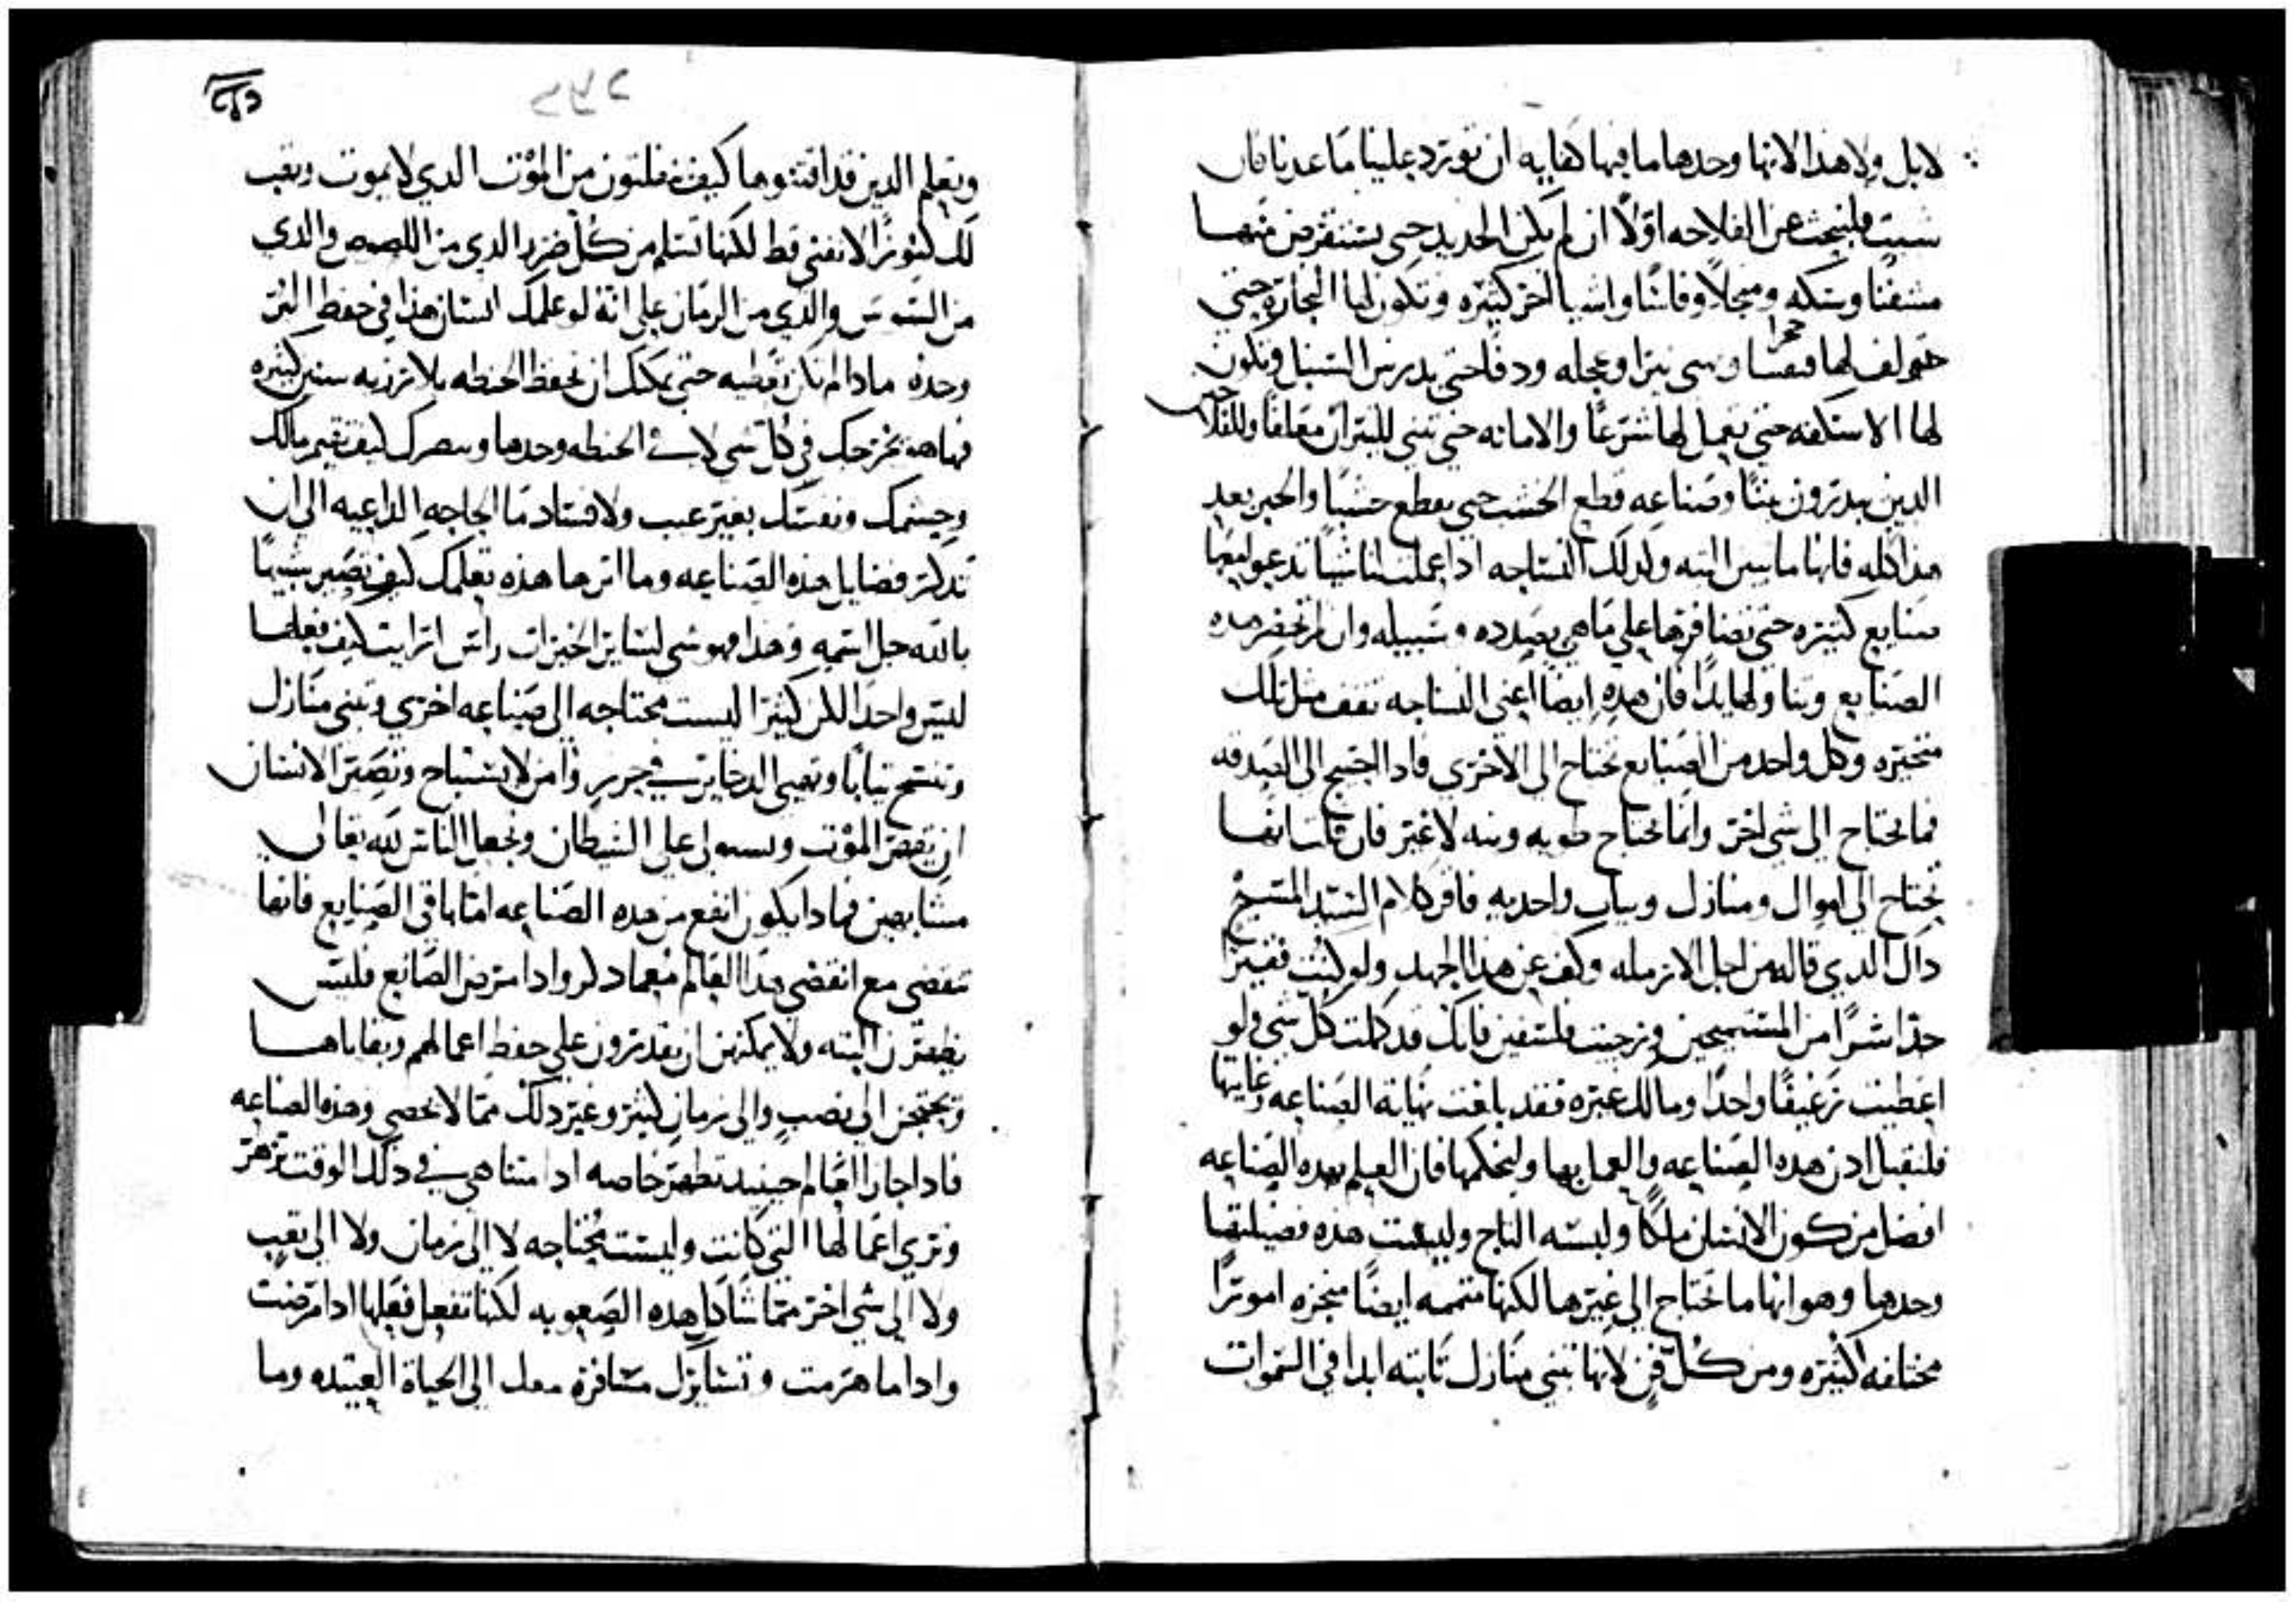 لابل ولا هذا لانها وحدها ما فيها كفايه ان تورد علينا ما عدنا فان
شيت فلنبحث عن الفلاحه اولًا ان لم يكن الحديد حتي يستقرض منها
مسفنًا وسكه ومنجلًا وفاسًا واشيا اخر كثيره وتكون لها النجاره حتي
لها نيرا وعجله ودفًا حتي يدرس السنبل وتكون
لها الاسكفه حتي يعمل لها شرعًا والامانه حتي تبني للثيران معلفًا وللفلاحين
الذين يبدرون بيتًا وصناعه قطع الخشب حتي يقطع خشبًا والخبز بعد
هذا كله فانها ما البته وكدلك النساجه ادا عملت لنا شيًا تدعو معها
صنايع كثيره حتي تضافرها علي ما هي بصدده وسبيله وان لم تحضر هده
الصنايع وتناولها يدًا فان هده ايضًا اعني النساجه تقف مثل تلك
متحيره وكل واحد من الصنايع تحتاج الي الاخري فادا احتيج الي الصدقه
فما تحتاج الي شي اخر وانما تحتاج طويه ونيه لا غير فان قلت انها
تحتاج الي اموال ومنازل وثياب واحديه فاقر كلام السيد المسيح
داك الدي قاله من اجل الارمله وكف عن هذا الجهد ولو كنت فقيرًا
جدًا شرًا من المستميحين ورحيت فلسين فانك قد كملت كل شي ولو
اعطيت رغيفًا واحدًا وما لك غيره فقد بلغت نهاية الصناعه وغايتها
فلنقبل ادن هده الصناعه والعمل بها ولنحكمها فان العلم بهده الصناعه
افضل من كون الانسان ملكًا ولبسه التاج وليست هذه فضيلتها
وحدها وهو انها ما تحتاج الي غيرها لكنها متممه ايضًا منجزه امورًا
مختلفه كثيره ومن كل فن لانها تبني منازل ثابته ابدا في السموات
وتعلم الدين قد اقتنوها كيف يفلتون من الموت الدي لا يموت وتهب
لك كنوزًا لا تفني قط لكنها تسلم من كل ضرر الدي من اللصوص والدي
من السوس والدي من الزمان علي انه لو علمك انسان هذا في حفظ البر
وحده مادا لم تكن تعطيه حتي يمكنك ان تحفظ الحنطه بلا مرزيه سنين كثيره
فها هده تخرجك في كل شي لا في الحنطه وحدها كيف تقيم مالك
وجسمك ونفسك بغير عيب ولا فساد ما الحاجه الداعيه الي ان
تدكر فضايل هذه الصناعه وما اثرها هذه تعلمك كيف تصير شبيهًا
بالله جل اسمه وهذا فهو شي لساير الخيرات راس ارايت كيف فعلها
ليس واحدًا لكن كثيرًا ليست محتاجه الي صناعه اخري وتبني منازل
وتنسج ثيابًا وتهيي الدخاير في حريز وامن لا يستباح وتصير الانسان
ان يقهر الموت ويستولي علي الشيطان وتجعل الناس لله تعالي
مشابهين فمادا يكون انفع من هده الصناعه اما باقي الصنايع فانها
تنقضي مع انقضي هذا العالم معما دكر وادا مرض الصانع فليس
يظهرن البته ولا يمكنهن ان يقدرون علي حفظ اعمالهم وبقاياها
ويحتجن الي نصب والي زمان كثير وغير دلك مما لا يحصي وهذه الصناعه
فادا جاز العالم حينيد تظهر خاصه ادا متنا هي في دلك الوقت تزهر
وتري اعمالها التي كانت وليست محتاجه لا الي زمان ولا الي تعب
ولا الي شي اخر مما شاكل هده الصعوبه لكنها تفعل فعلها ادا مرضت
وادا ما هرمت مسافرة معك الي الحياة العتيده وما